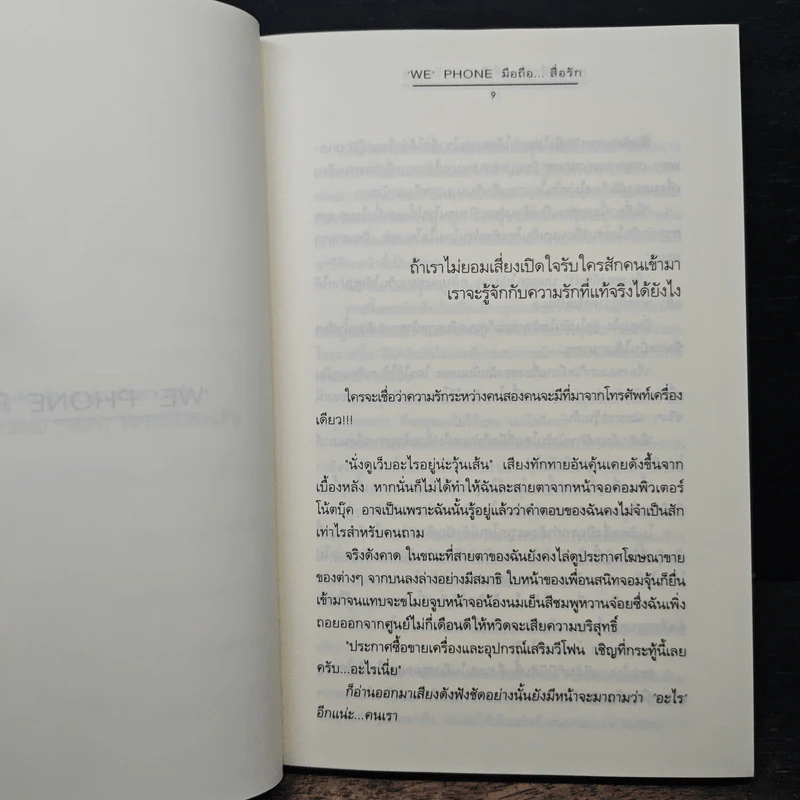 'WE' PHONE มือถือ... สื่อรัก
9
ถ้าเราไม่ยอมเสี่ยงเปิดใจรับใครสักคนเข้ามา
เราจะรู้จักกับความรักที่แท้จริงได้ยังไง
ใครจะเชื่อว่าความรักระหว่างคนสองคนจะมีที่มาจากโทรศัพท์เครื่อง
เดียว!!!
"นั่งดูเว็บอะไรอยู่น่ะวุ้นเส้น" เสียงทักทายอันคุ้นเคยดังขึ้นจาก
เบื้องหลัง หากนั่นก็ไม่ได้ทำให้ฉันละสายตาจากหน้าจอคอมพิวเตอร์
โน้ตบุ๊ค อาจเป็นเพราะฉันนั้นรู้อยู่แล้วว่าคำตอบของฉันคงไม่จำเป็นสัก
เท่าไรสำหรับคนถาม
จริงดังคาด ในขณะที่สายตาของฉันยังคงไล่ดูประกาศโฆษณาขาย
ของต่างๆ จากบนลงล่างอย่างมีสมาธิ ใบหน้าของเพื่อนสนิทจอมจุ้นก็ยื่น
เข้ามาจนแทบจะขโมยจูบหน้าจอน้องนมเย็นสีชมพูหวานจ๋อยซึ่งฉันเพิ่ง
ถอยออกจากศูนย์ไม่กี่เดือนดีให้หวิดจะเสียความบริสุทธิ์
"ประกาศซื้อขายเครื่องและอุปกรณ์เสริมวีโฟน เชิญที่กระทู้นี้เลย
ครับ...อะไรเนี่ย"
ก็อ่านออกมาเสียงดังฟังชัดอย่างนั้นยังมีหน้าจะมาถามว่า 'อะไร'
อีกแน่ะ...คนเรา